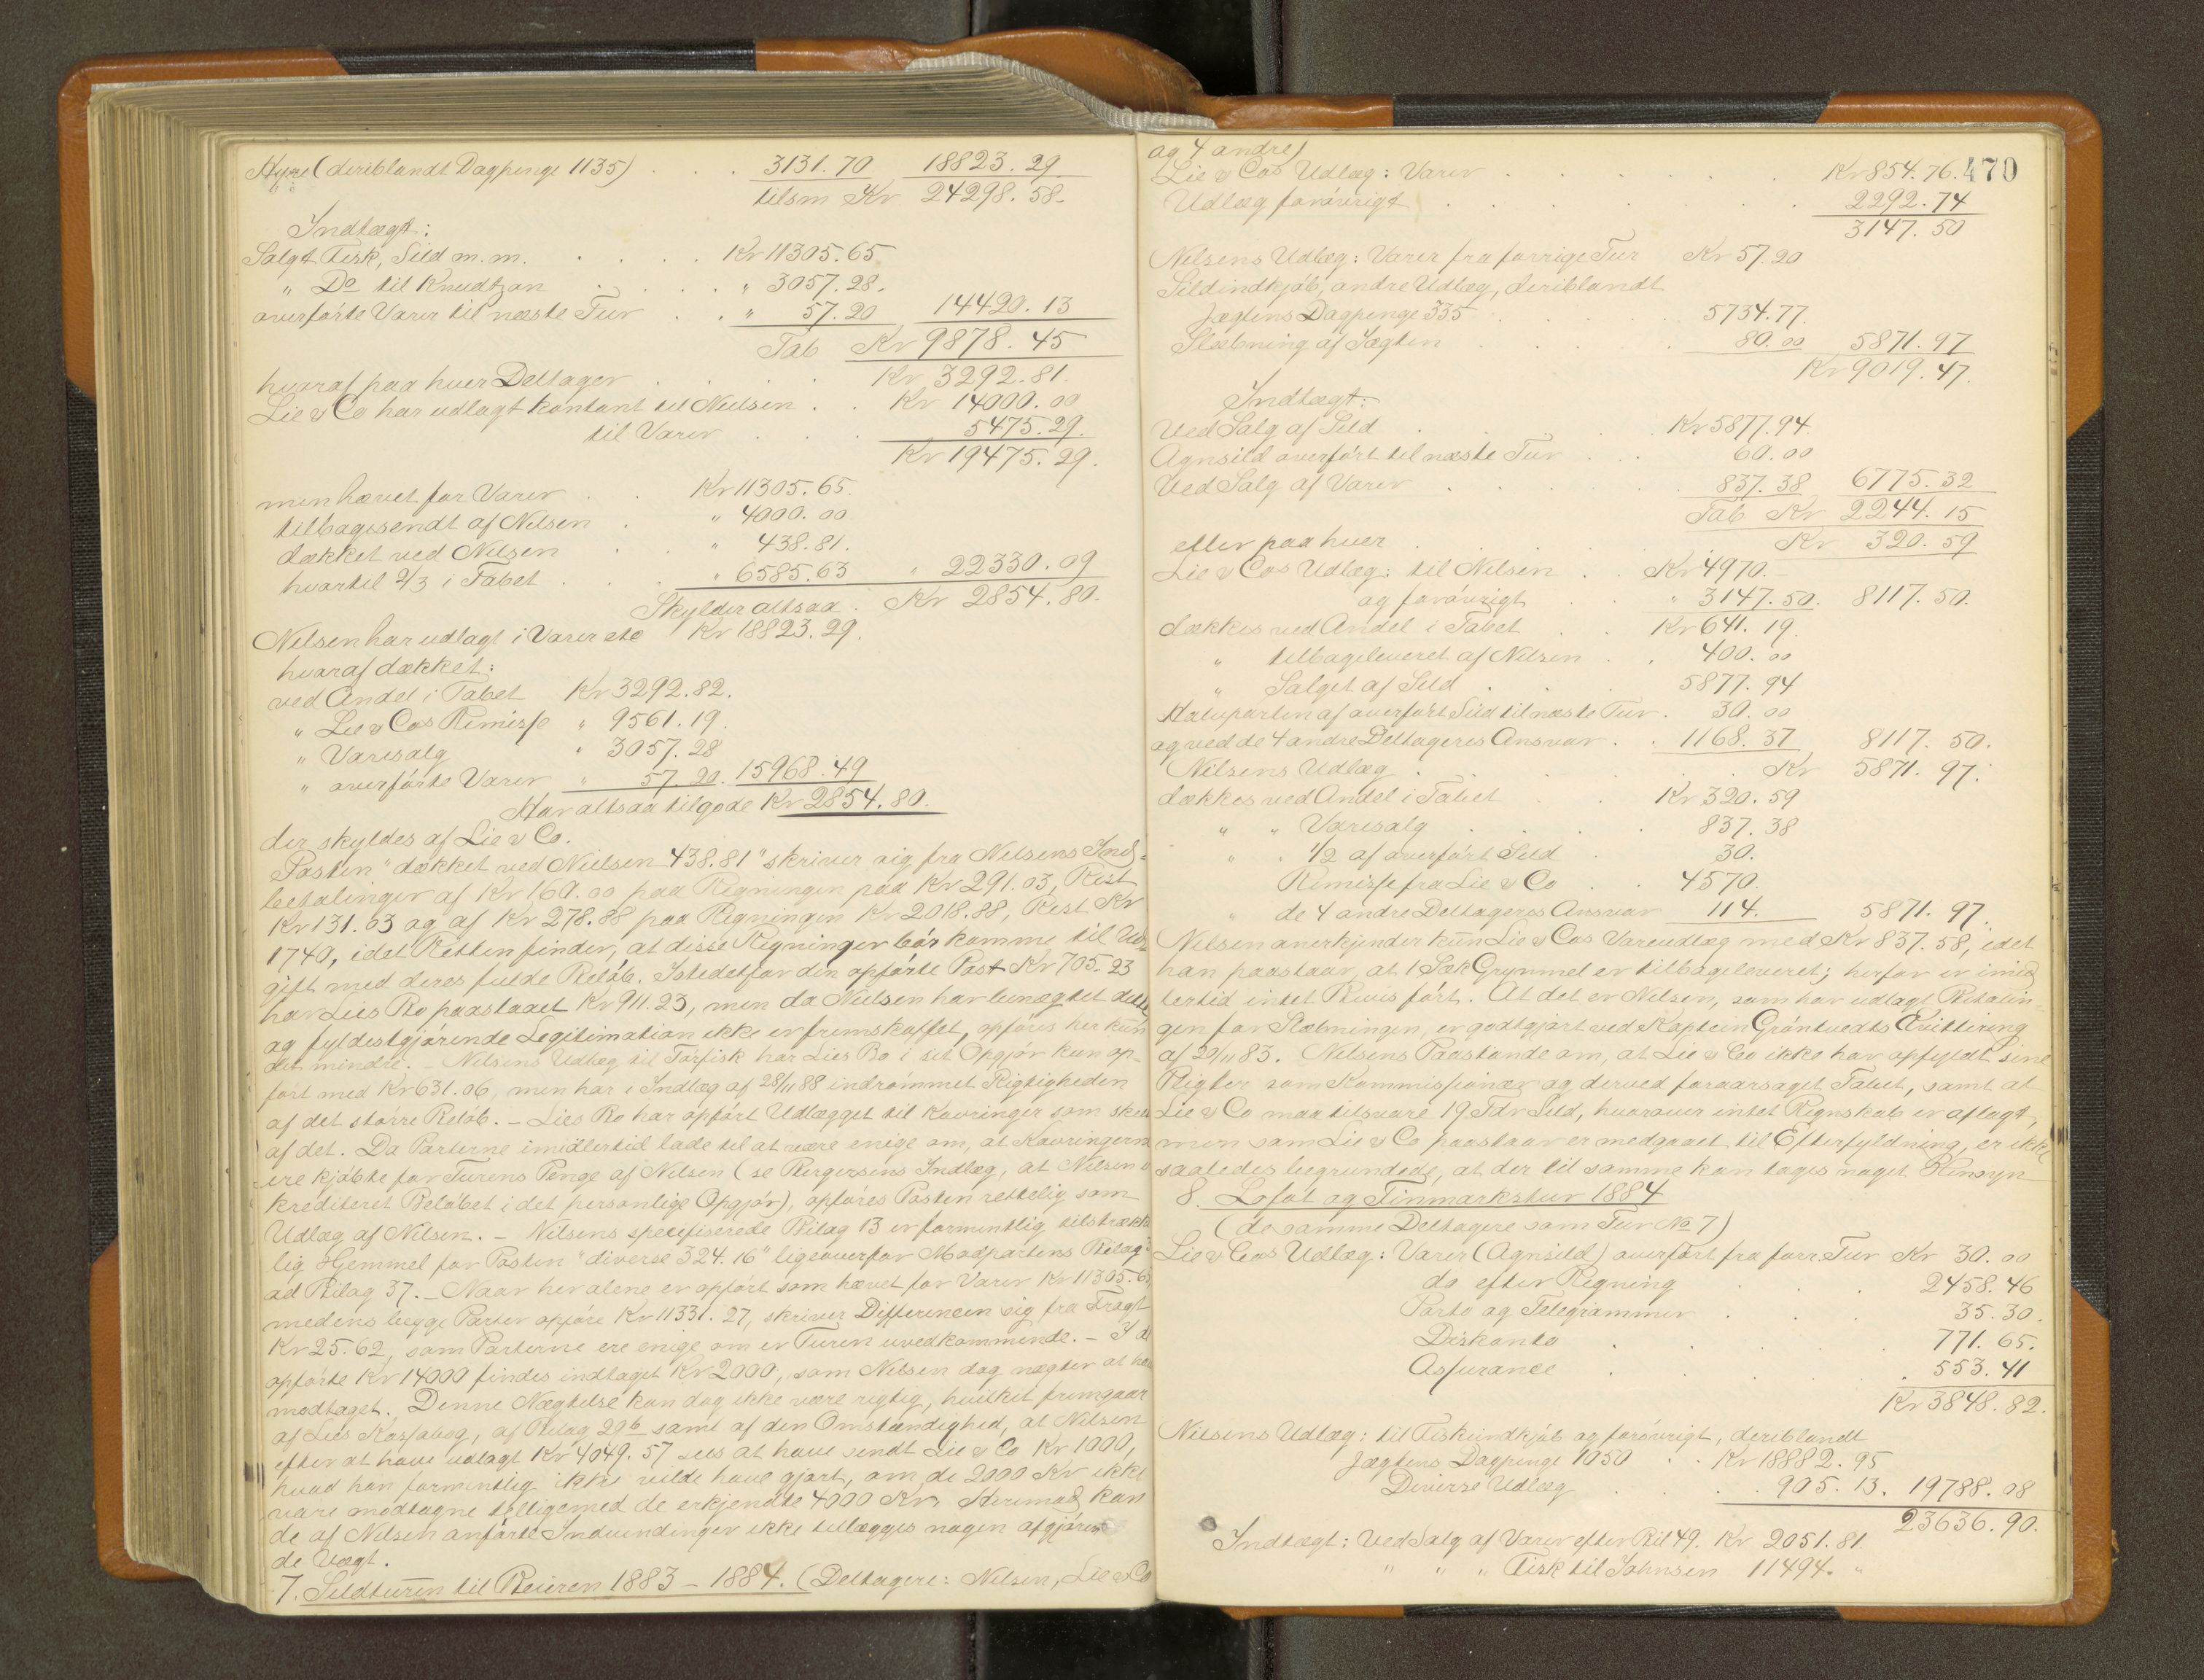 Hyre (deriblandt Dagpenge 1135) . . . 3131.70 18823.29.
tilsm Kr 24298.58.
Indtægt:
Solgt Fisk, Sild m.m. . . . . Kr 11305.65
" Do til Knudtzon . . . . " 3057.28.
overførte Varer til næste Tur . . " 57.20 14420.13
Tab Kr 9878.45
hvoraf paa hver Deltager . . . Kr 3292.81.
Lie & Co har udlagt kontant til Nielsen . . Kr 14000.00
til Varer . . . 5475.29.
Kr 19475.29.
men hævet for Varer . . Kr 11305.65.
tilbagesendt af Nilsen . " 4000.00
dækket ved Nilsen . . " 438.81.
hvortil 2/3 i Tabet . . . " 6585.63 " 22330.09
Skylder altsaa . Kr 2854.80.
Nilsen har udlagt i Varer etc Kr 18823.29.
hvoraf dækket:
ved Andel i Tabet Kr 3292.82.
" Lie & Cos Rimisse " 9561.19.
" Varesalg " 3057.28
" overførte Varer " 57.20. 15968.49
Har altsaa tilgode Kr 2854.80.
der skyldes af Lie & Co.
Posten "dækket ved Nielsen 438.81" skriver sig fra Nilsens Ind-
betalinger af Kr 160.00 paa Regningen paa Kr 291.03, Rest
Kr 131.03 og af Kr 278.88 paa Regningen Kr 2018.88, Rest Kr
1740, idet Retten finder, at disse Regninger bør komme til Ud-
gift med deres fulde Beløb. Istedetfor den opførte Post Kr 705.23
har Lies Bo paastaaet Kr 911.23, men da Nielsen har benægtet dette
og fyldestgjørende Legitimation ikke er fremskaffet, opføres her kun
det mindre. – Nilsens Udlæg til Torfisk har Lies Bo i sit Opgjør kun op-
ført med Kr 631.06, men har i Indlæg af 28/11 88 indrømmet Rigtigheden
af det større Beløb. – Lies Bo har opført Udlægget til Kavringer som skeet
af det. Da Parterne imidlertid lade til at være enige om, at Kavringerne
ere kjøbte for Turens Penge af Nilsen (se Birgersens Indlæg, at Nilsen
krediteret Beløbet i det personlige Opgjør), opføres Posten rettelig som
Udlæg af Nilsen. – Nilsens specifiserede Bilag 13 er formentlig tilstrække
lig Hjemmel for Posten "diverse 324.16" ligeoverfor Modpartens Bilag
ad Bilag 37. – Naar her alene er opført som hævet for Varer Kr 11305.65
medens begge Parter opføre Kr 11331.27, skriver Differencen sig fra Fragt
Kr 25.62, som Parterne ere enige om er Turen uvedkommende. – I de
opførte Kr 14000 findes indtaget Kr 2000, som Nilsen dog nægter at have
modtaget. Denne Nægtelse kan dog ikke være rigtig, hvilket fremgaar
af Lies Kassabog, af Bilag 29b samt af den Omstændighed, at Nilsen
efter at have udlagt Kr 4049.57 sees at have sendt Lie & Co Kr 1000,
hvad han formentlig ikke vilde have gjort, om de 2000 Kr ikke
vare modtagne tilligemed de erkjendte 4000 Kr. Herimod kan
de af Nilsen anførte Indvendinger ikke tillægges nogen afgjøren
de Vægt.
7. Sildturen til Beieren 1883 – 1884. (Deltagere: Nilsen, Lie & Co
og 4 andre)
470
Lie & Cos Udlæg: Varer . . . . . . Kr 854.76.
Udlæg forøvrigt . . . . . . . 2292.74
3147.50
Nilsens Udlæg: Varer fra forrige Tur Kr 57.20
Sildindkjøb, andre Udlæg, deriblandt
Jægtens Dagpenge 335 . . . . 5734.77.
Slæbning af Jægten . . . . 80.00 5871.97
Kr 9019.47.
Indtægt:
Ved Salg af Sild . . . . Kr 5877.94
Agnsild overført til næste Tur . . 60.00
Ved Salg af Varer . . . . . 837.38 6775.32
Tab Kr 2244.15
eller paa hver . . . . . Kr 320.59
Lie & Cos Udlæg: til Nilsen . . Kr 4970.
og forøvrigt . . " 3147.50. 8117.50.
dækkes ved Andel i Tabet . . Kr 641.19.
" tilbageleveret af Nilsen . . 400.00
" Salget af Sild . . . 5877.94
Halvparten af overført Sild til næste Tur . 30.00
og ved de 4 andre Deltageres Ansvar . . 1168.37 8117.50.
Nilsens Udlæg . . . . . Kr 5871.97.
dækkes ved Andel i Tabet . . Kr 320.59
" " Varesalg . . . . 837.38
" " 1/2 af overført Sild . 30.
Rimisse fra Lie & Co . . 4570.
" de 4 andre Deltageres Ansvar 114. 5871.97.
Nilsen anerkjender kun Lie & Cos Vareudlæg med Kr 837.58, idet
han paastaar, at 1 Sæk Grynmel er tilbageleveret; herfor er imid
lertid intet Bevis ført. At det er Nilsen, som har udlagt Betalin-
gen for Slæbningen, er godtgjort ved Kaptein Grøntvedts Kvittering
af 29/11 83. Nilsens Paastande om, at Lie & Co ikke har opfyldt sine
Pligter som Kommissionær og derved foraarsaget Tabet, samt at
Lie & Co maa tilsvare 19 Tdr Sild, hvorover intet Regnskab er aflagt,
men som Lie & Co paastaar er medgaaet til Efterfyldning, er ikke
saaledes begrundede, at der til samme kan tages noget Hensyn
8. Lofot og Finmarkstur 1884
(de samme Deltagere som Tur No 7)
Lie & Cos Udlæg: Varer (Agnsild) overført fra forr. Tur Kr 30.00
do efter Regning . . 2458.46
Porto og Telegrammer . . . 35.30.
Diskonto . . . . 771.65.
Assurance . . . . 553.41
Kr 3848.82.
Nilsens Udlæg: til Fiskeindkjøb og forøvrigt, deriblandt
Jægtens Dagpenge 1050 . . Kr 18882.95
Diverse Udlæg . . . 905.13. 19788.08
23636.90.
Indtægt: Ved Salg af Varer efter Bil 49. Kr 2051.81.
" " " Fisk til Johnsen 11494. "